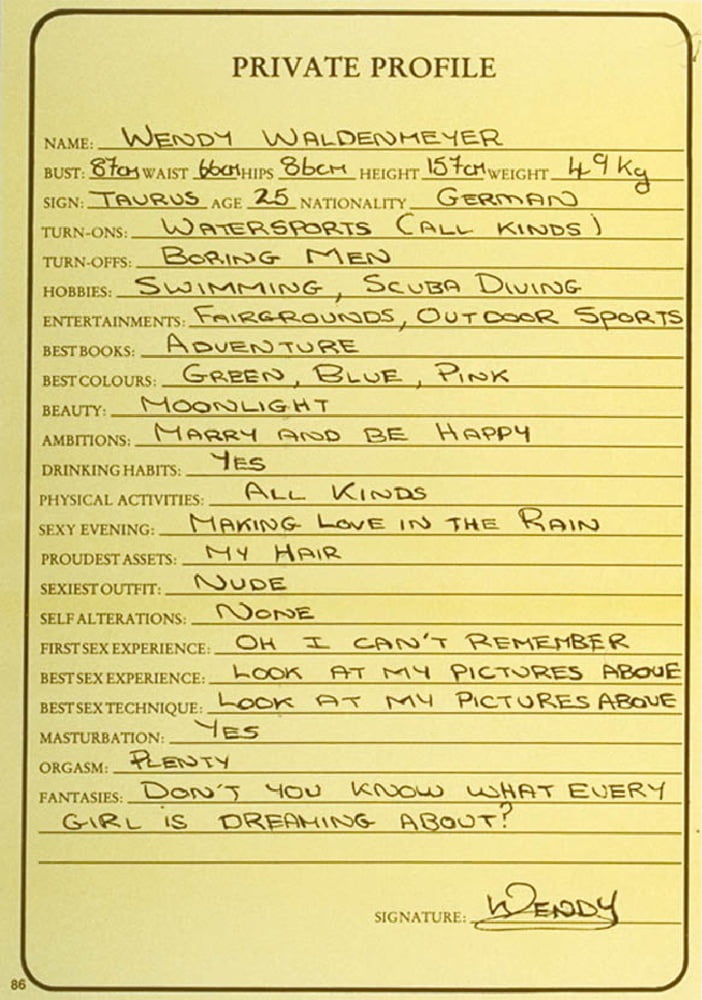 PRIVATE PROFILE
NAME: WENDY WALDENMEYER
BUST: 87cm WAIST 66cm HIPS 86cm HEIGHT 157cm WEIGHT 49 Kg
SIGN: TAURUS AGE 25 NATIONALITY GERMAN
TURN-ONS: WATERSPORTS (ALL KINDS)
TURN-OFFS: BORING MEN
HOBBIES: SWIMMING, SCUBA DIVING
ENTERTAINMENTS: FAIRGROUNDS, OUTDOOR SPORTS
BEST BOOKS: ADVENTURE
BEST COLOURS: GREEN, BLUE, PINK
BEAUTY: MOONLIGHT
AMBITIONS: MARRY AND BE HAPPY
DRINKING HABITS: YES
PHYSICAL ACTIVITIES: ALL KINDS
SEXY EVENING: MAKING LOVE IN THE RAIN
PROUDEST ASSETS: MY HAIR
SEXIEST OUTFIT: NUDE
SELF ALTERATIONS: NONE
FIRST SEX EXPERIENCE: OH I CAN'T REMEMBER
BEST SEX EXPERIENCE: LOOK AT MY PICTURES ABOVE
BEST SEX TECHNIQUE: LOOK AT MY PICTURES ABOVE
MASTURBATION: YES
ORGASM: PLENTY
FANTASIES: DON'T YOU KNOW WHAT EVERY
GIRL IS DREAMING ABOUT?
SIGNATURE: WENDY
86